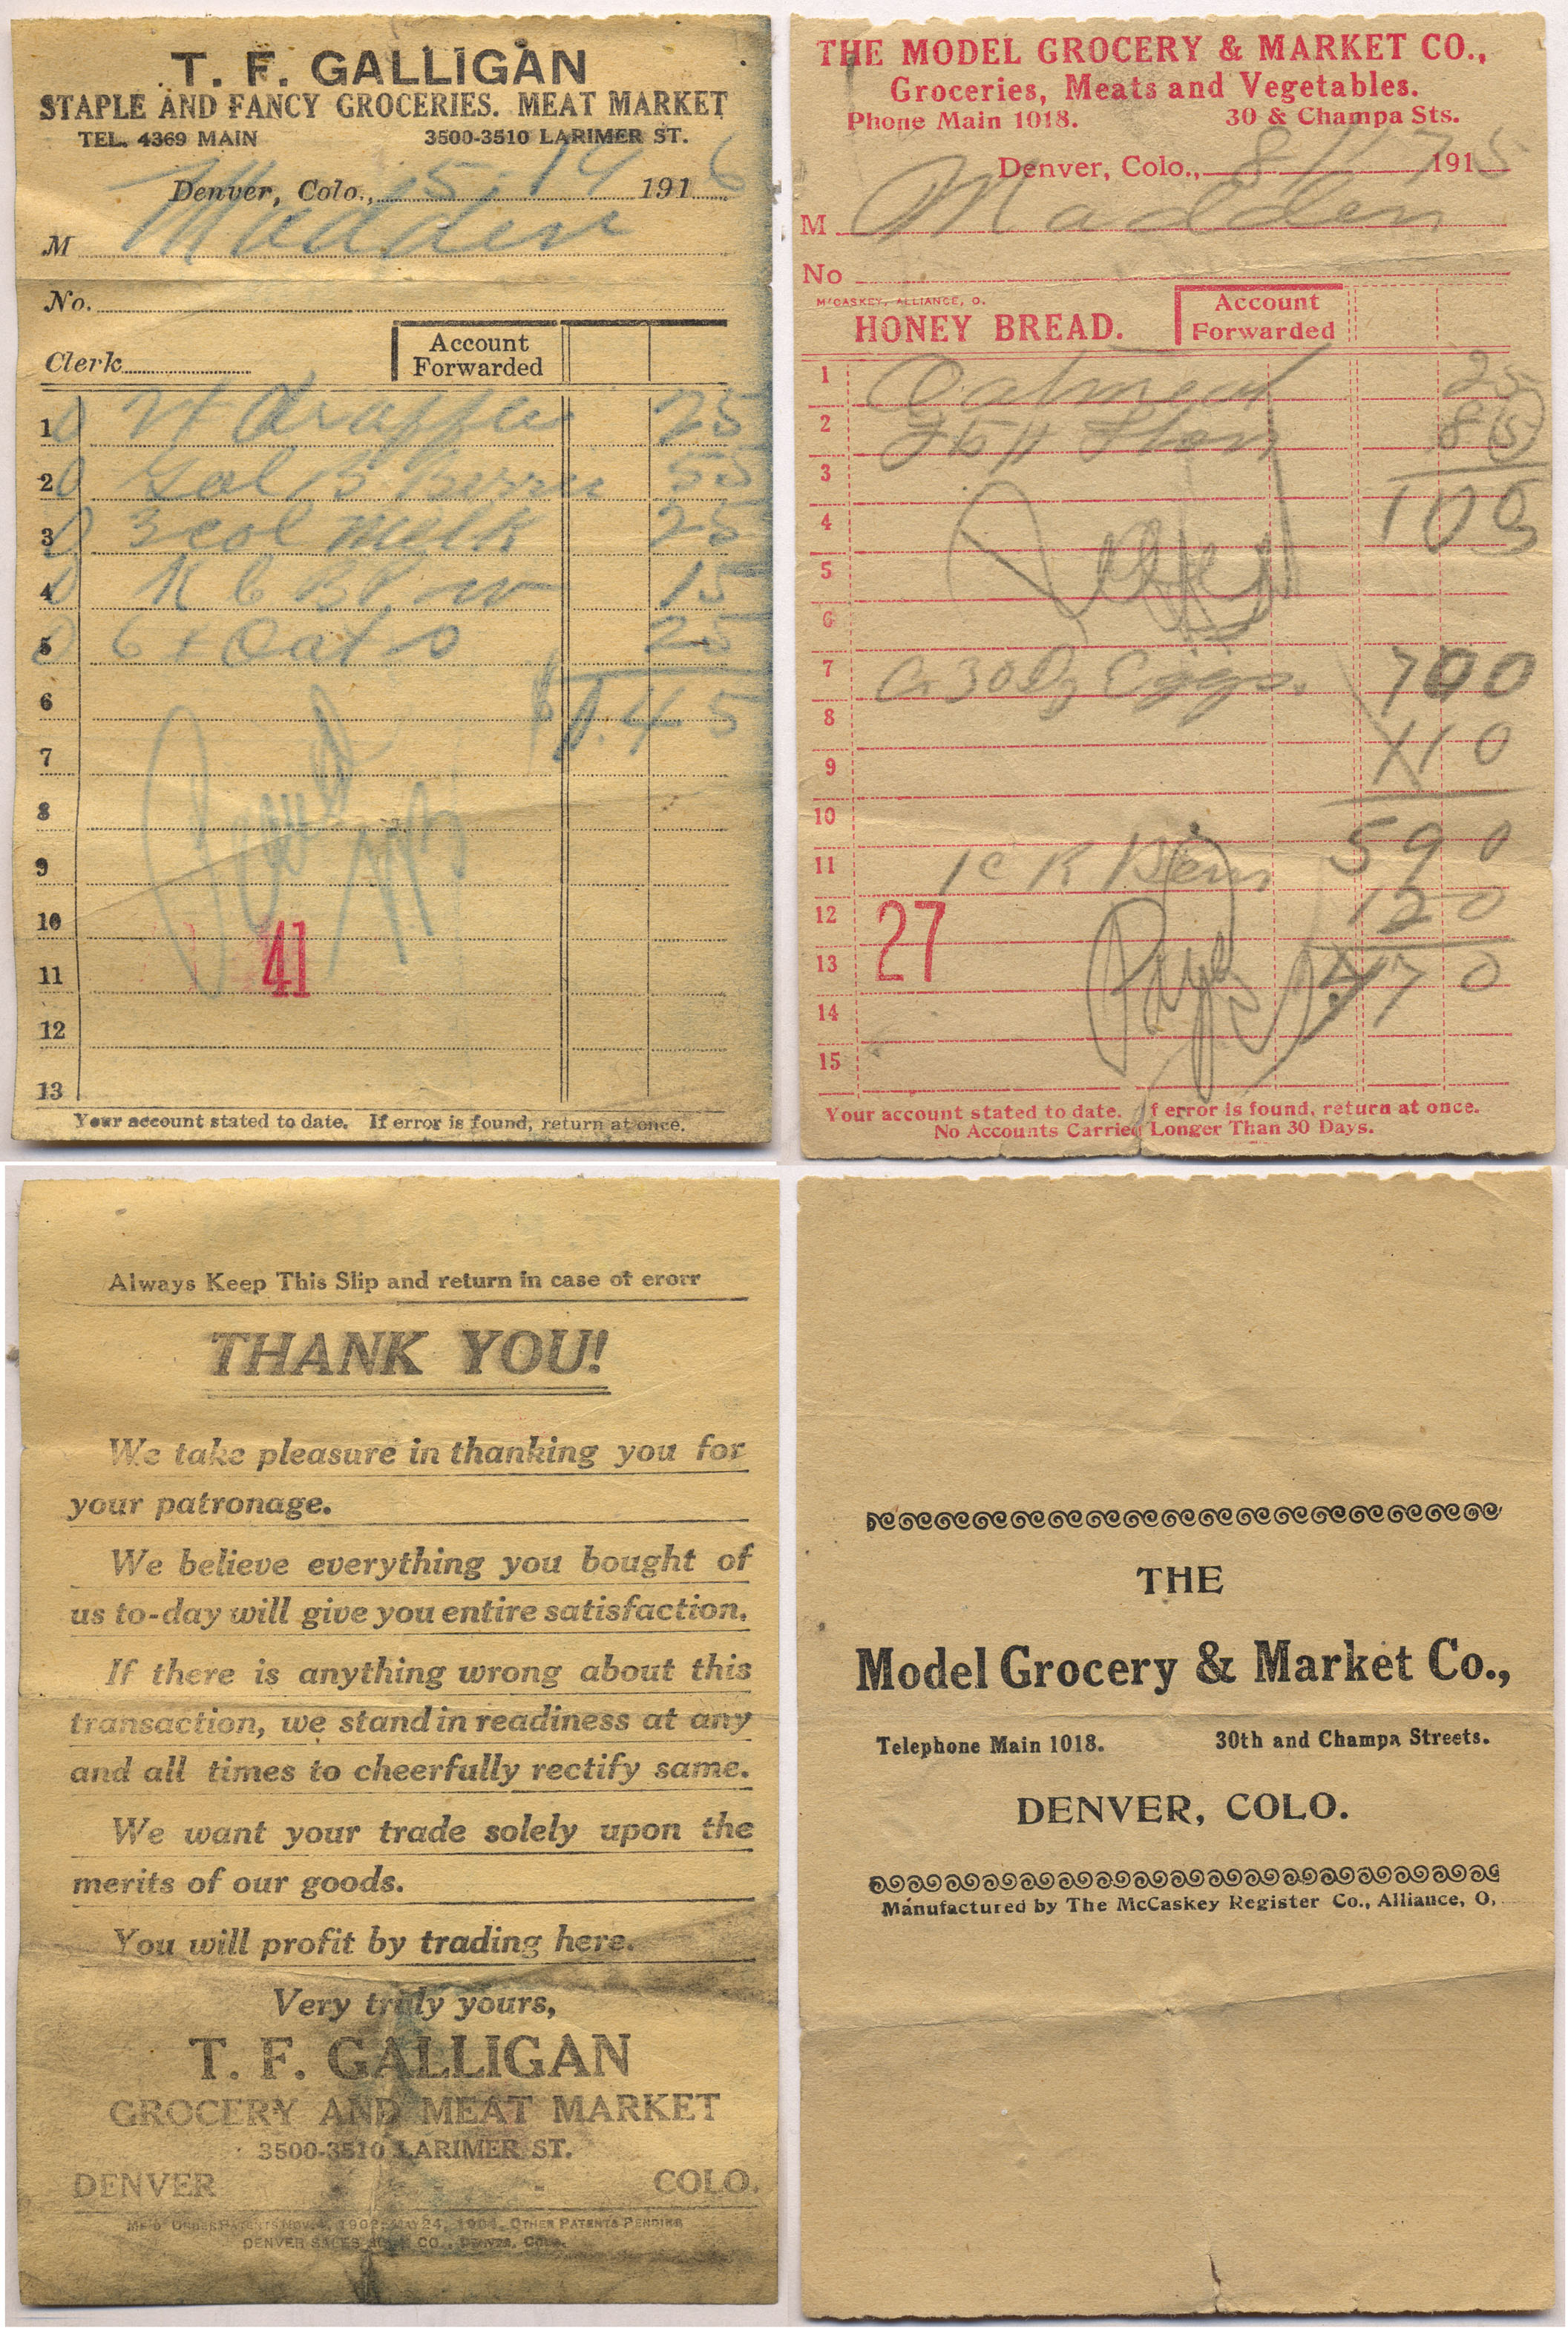 T. F. GALLIGAN
STAPLE AND FANCY GROCERIES. MEAT MARKET
TEL. 4369 MAIN 3500-3510 LARIMER ST.
Denver, Colo., 5-14 1916
M Madden
No.
Clerk
Account Forwarded
1 25
2 Gal B Berrie 55
3 3 col Milk 25
4 K C B P 15
5 6 Oats 25
6 $1.45
7
8
9
10
41
11
12
13
Your account stated to date. If error is found, return at once.
THE MODEL GROCERY & MARKET CO.,
Groceries, Meats and Vegetables.
Phone Main 1018. 30 & Champa Sts.
Denver, Colo., 8/17 1915
M Madden
No
McCASKEY, ALLIANCE, O.
HONEY BREAD.
Account Forwarded
1 Oatmeal 25
2 85
3
4 105
5
6
7 30 Dz Eggs. 700
8
9 110
10
11 590
12 120
27
13 470
14
15
Your account stated to date. If error is found, return at once.
No Accounts Carried Longer Than 30 Days.
Always Keep This Slip and return in case of erorr
THANK YOU!
We take pleasure in thanking you for
your patronage.
We believe everything you bought of
us to-day will give you entire satisfaction.
If there is anything wrong about this
transaction, we stand in readiness at any
and all times to cheerfully rectify same.
We want your trade solely upon the
merits of our goods.
You will profit by trading here.
Very truly yours,
T. F. GALLIGAN
GROCERY AND MEAT MARKET
3500-3510 LARIMER ST.
DENVER - - - COLO.
MF'D UNDER PATENTS NOV. 4, 1902, MAY 24, 1904, OTHER PATENTS PENDING
DENVER SALES BOOK CO., DENVER, COLO.
THE
Model Grocery & Market Co.,
Telephone Main 1018. 30th and Champa Streets.
DENVER, COLO.
Manufactured by The McCaskey Register Co., Alliance, O.